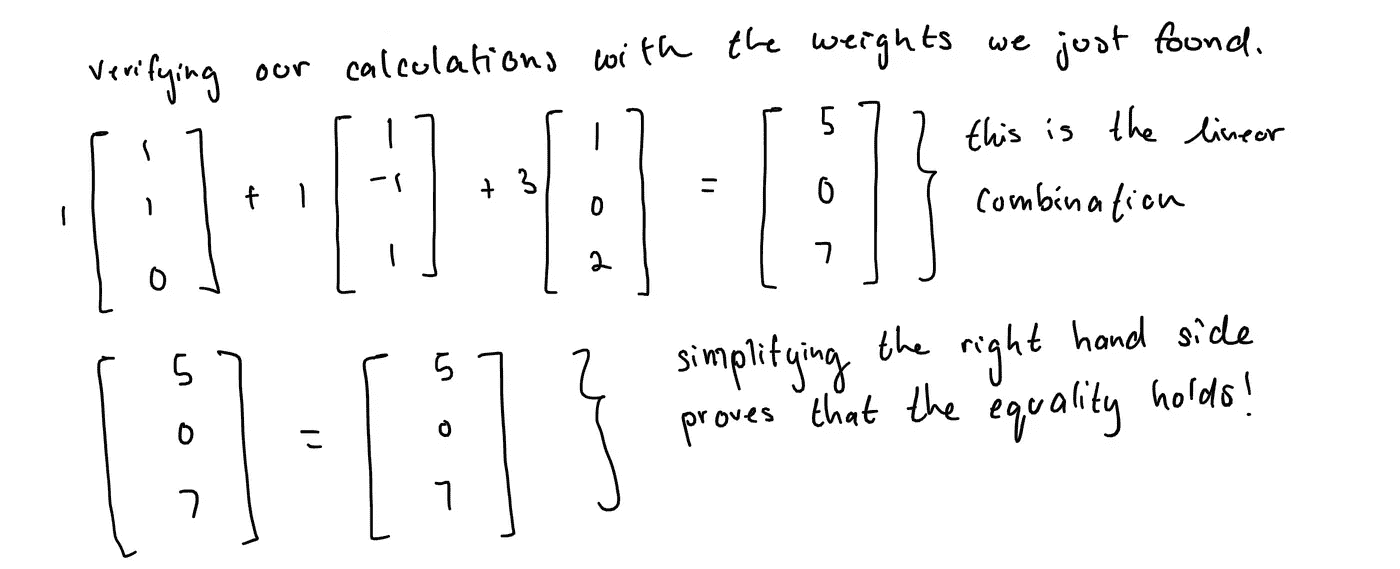 verifying our calculations with the weights we just found.
1 [1 1 0] + 1 [1 -1 1] + 3 [1 0 2] = [5 0 7] } this is the linear
combination
[5 0 7] = [5 0 7] } simplifying the right hand side
proves that the equality holds!